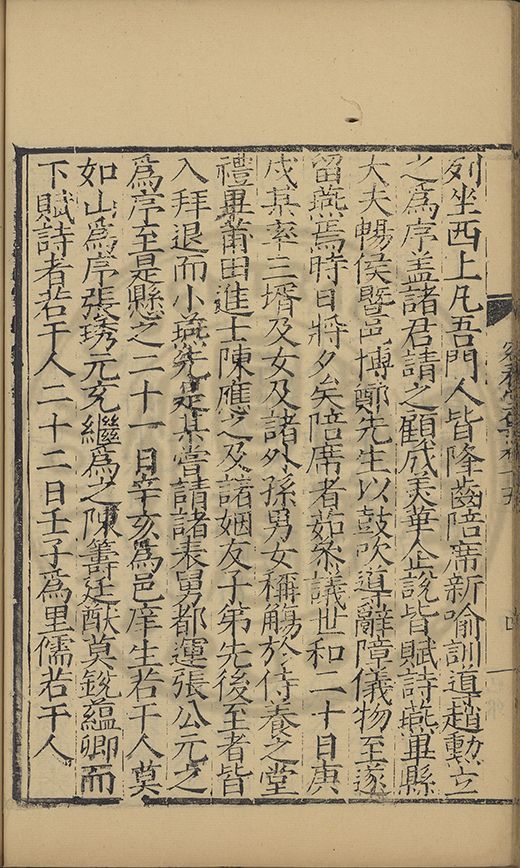 列坐西上凡吾門人皆降齒陪席新喻訓道趙勲立
之為序盖諸君請之顧成美華企說皆賦詩燕畢縣
大夫暢侯暨邑博鄭先生以鼓吹道辭障儀物至遂
留燕焉時日將夕矣陪席者茹叅議世和二十日庚
戌某率三壻及女及諸外孫男女稱觴於侍養之堂
禮畢莆田進士陳應之及諸姻友子弟先後至者皆
入拜退而小燕先是某嘗請諸表舅都運張公元之
為序至是懸之二十一日辛亥為邑庠生若干人莫
如山為序張琇元充繼為之陳籌廷猷莫銳蘊卿而
下賦詩者若干人二十二日壬子為里儒若干人